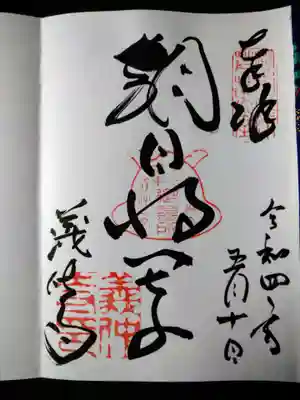 奉拝
令和四年
五月十日
朝日将軍
義仲寺
義仲
寺印